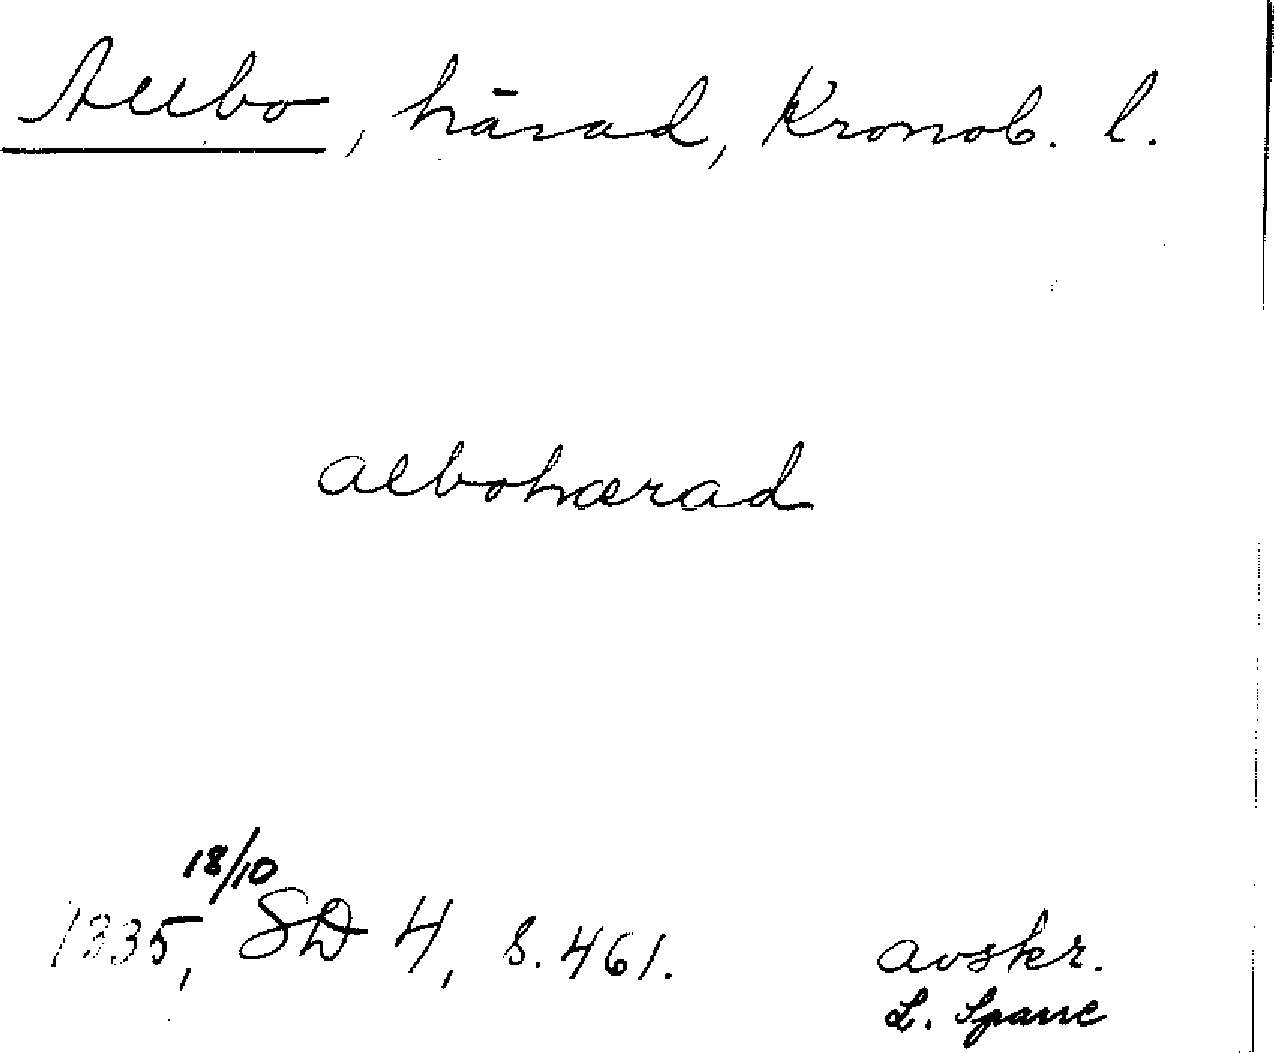 Allbo, härad, Kronob. l.
albohærad
18/10
1335, SD 4, s. 461.
avskr.
L. Sparre